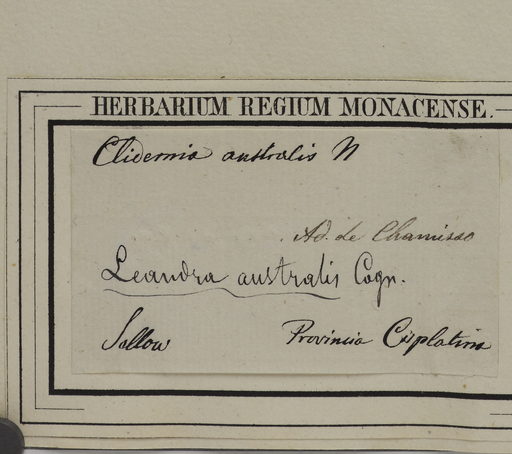 HERBARIUM REGIUM MONACENSE.
Clidemia australis N
Ad. de Chamisso
Leandra australis Cogn.
Sellow Provincia Cisplatina